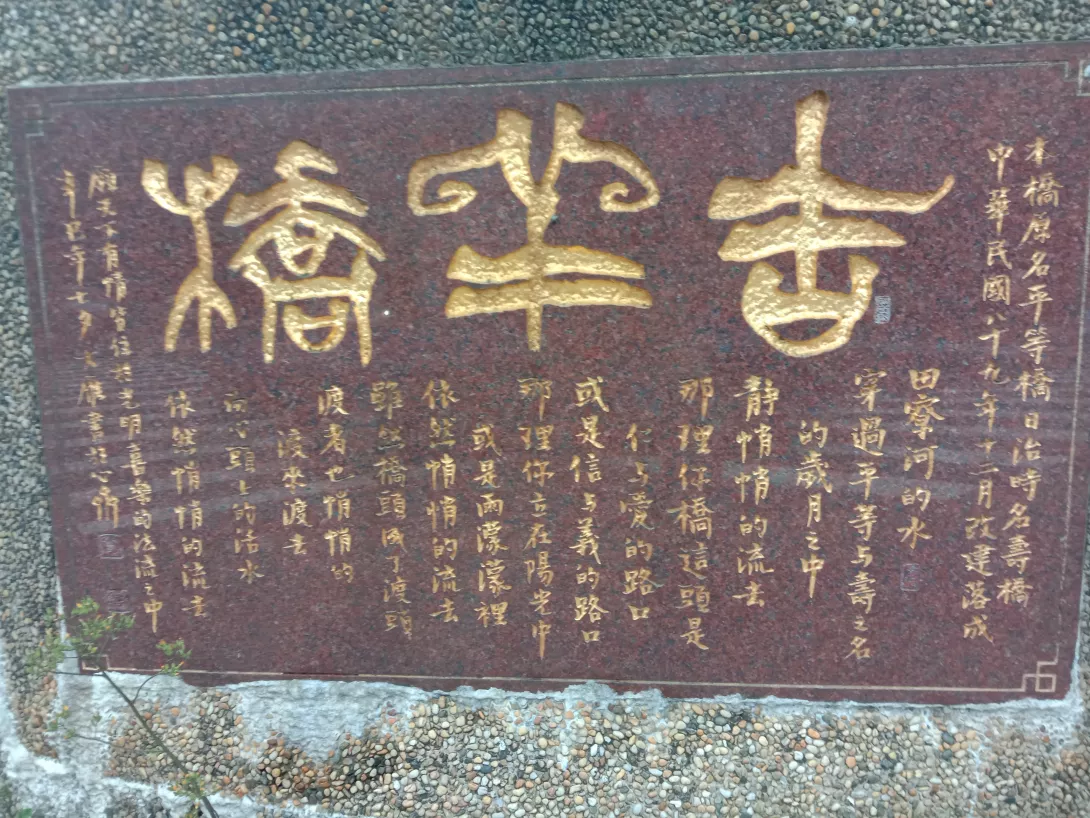 本橋原名平等橋日治時名壽橋
中華民國八十九年十二月改建落成
吉羊橋
田寮河的水
穿過平等与壽之名
的歲月之中
靜悄悄的流去
那理你橋這頭是
仁与愛的路口
或是信与義的路口
那理你立在陽光中
或是雨濛濛裡
依然悄悄的流去
雖然橋頭成了渡頭
渡者也悄悄的
渡來渡去
而心頭上的活水
依然悄悄的流去
願天下有情皆住於光明喜樂的法流之中
辛巳年七夕大書於心